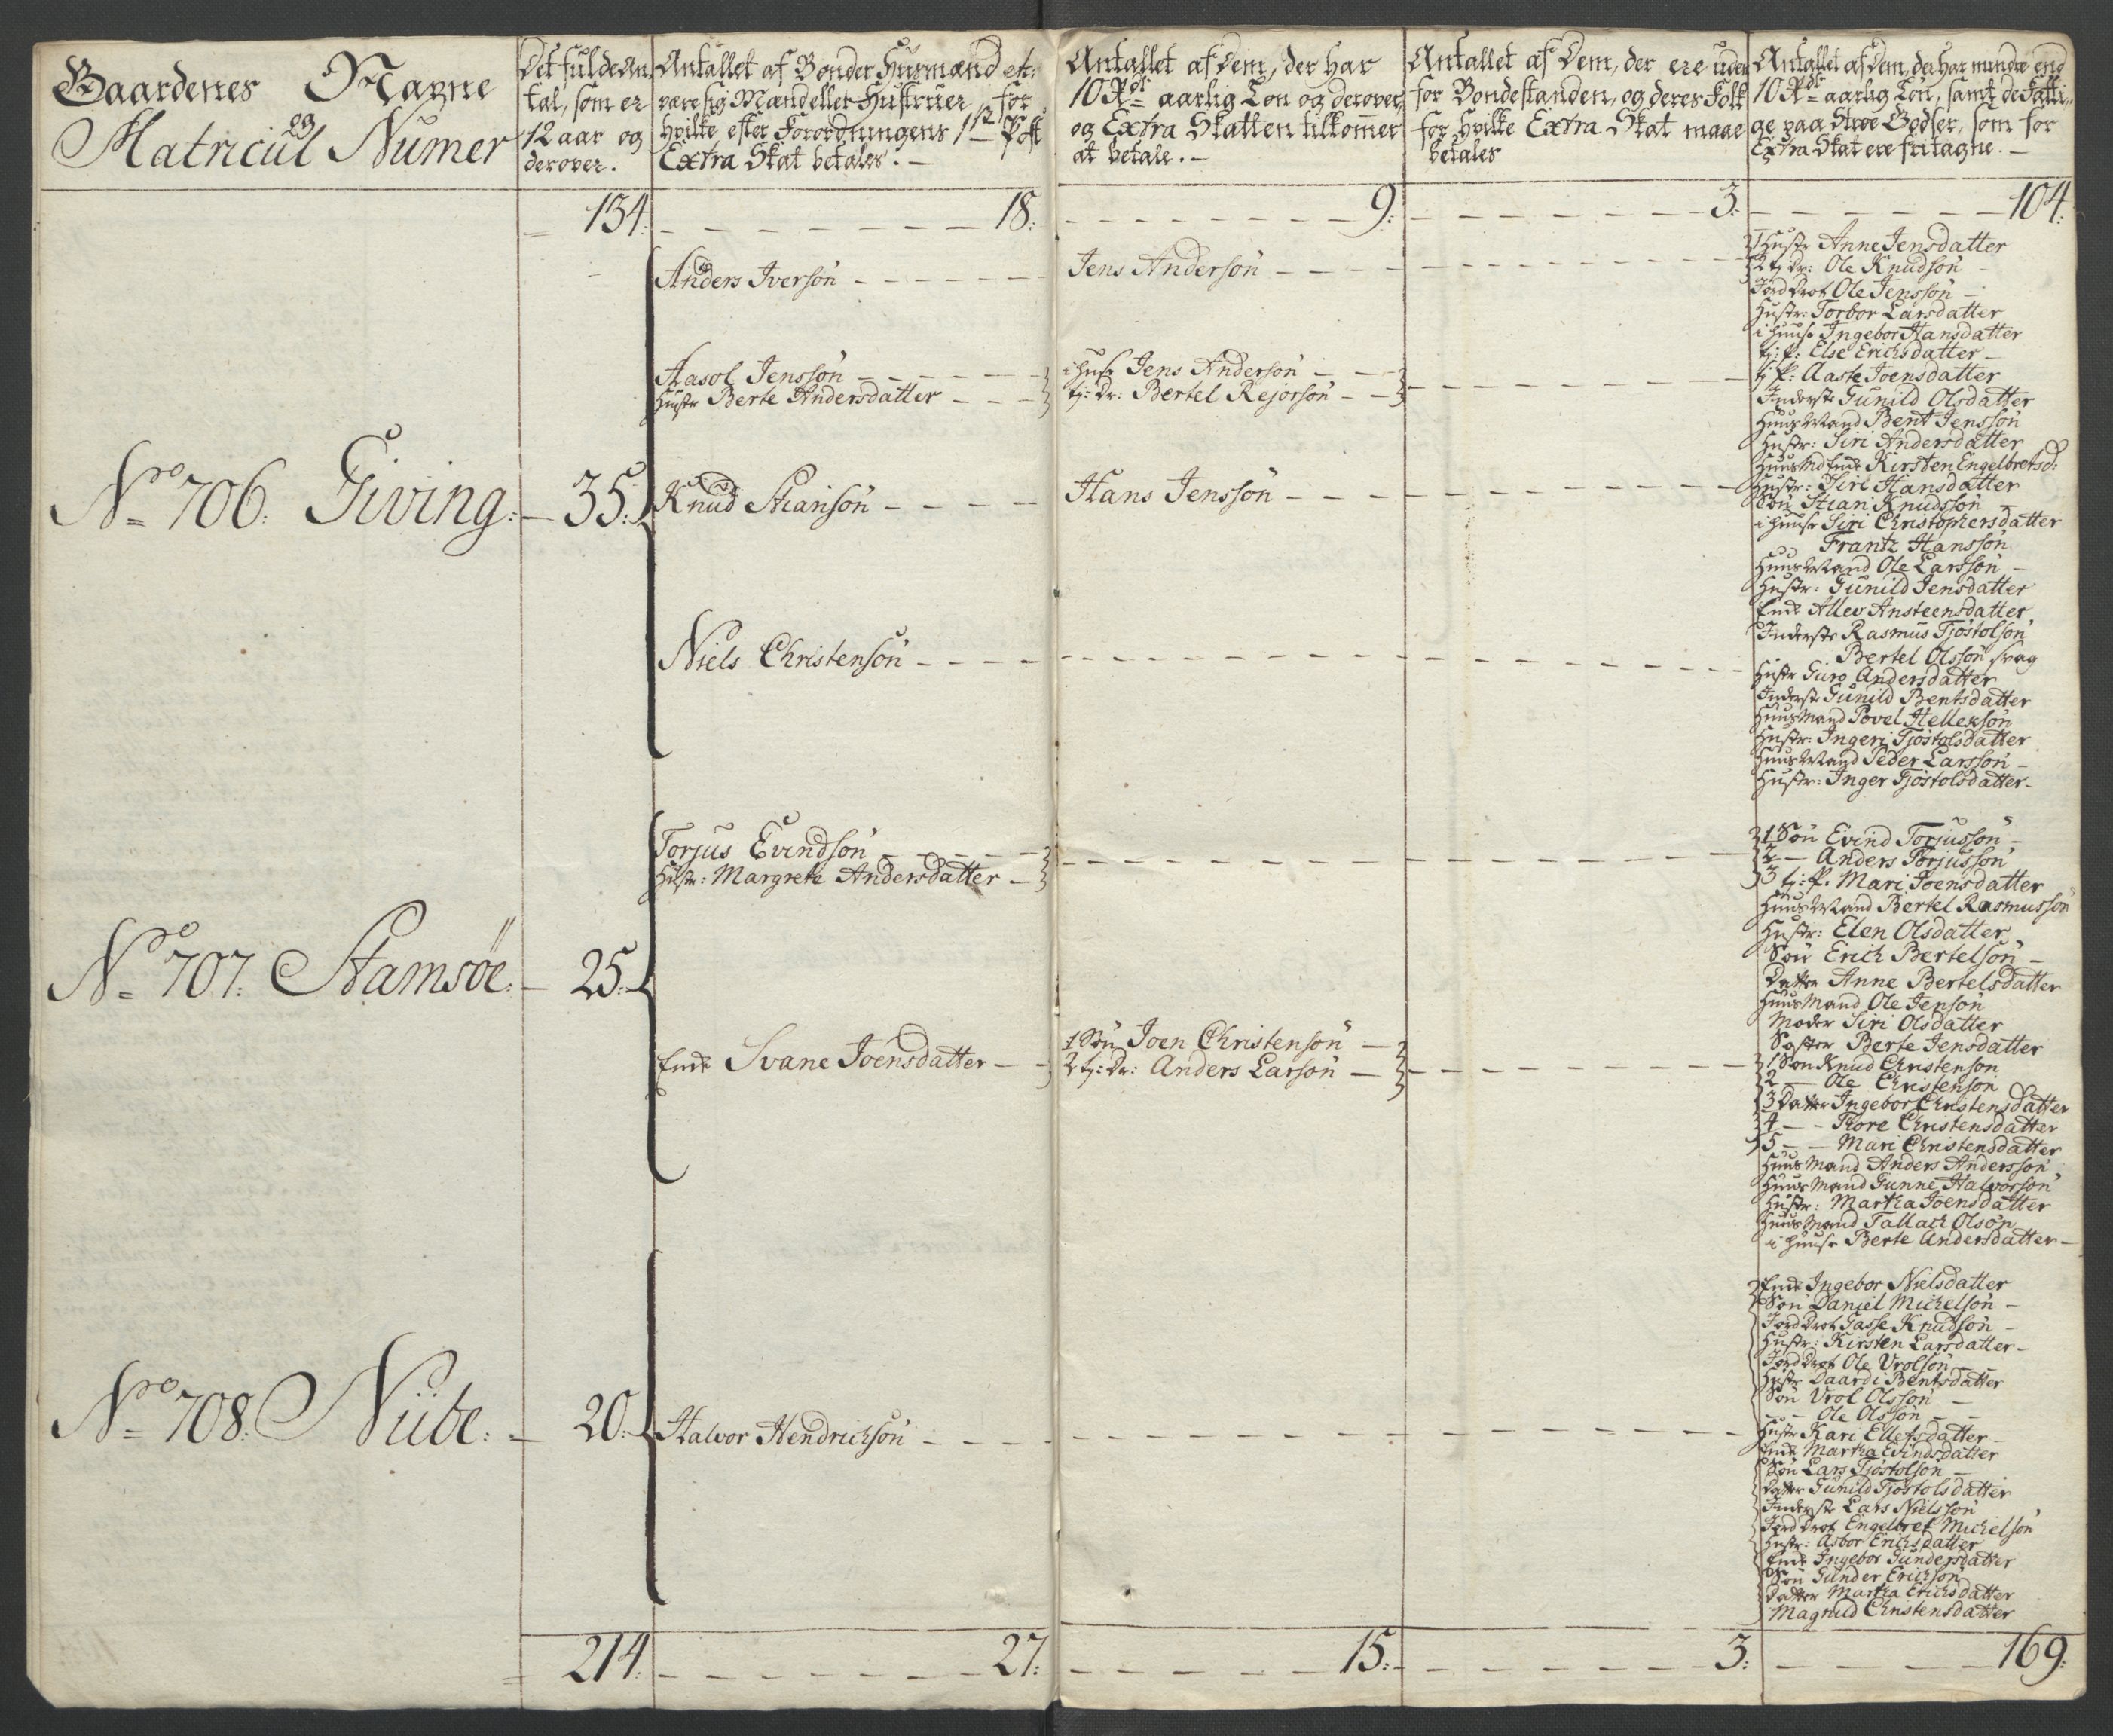 Gaardenes Nagne
og
Matricul Numer
Det fulde An-
tal, som er
12 aar og
derover.
Antallet af Bønder Husmænd etc:
være sig Mænd eller Hustruer, for
hvilke efter Forordningens 1ste Post
Extra Skat betales. —
Antallet af Dem, der har
10 Rdr aarlig Løn og derover,
og Extra Skatten tilkom̄er
at betale. —
Antallet af Dem, der ere uden
for Bondestanden, og deres Folk
for hvilke Extra Skat maae
betales
Antallet af Dem, der har mindre end
10 Rdr aarlig Løn, samt de Fatti-
ge paa Strøe Godser, som for
Extra Skat ere fritagne. —
134. 18. 9. 3. 104.
No 706. Giving. 35.
Anders Iversøn
Aasol Jenssøn
Hustr Berte Andersdatter
Knud Stiansøn
Niels Christensøn
Jens Andersøn
i Huse Jens Andersøn
tj: Dr: Bertel Rejorsøn
Hans Jenssøn
1 Hustr Anne Jensdatter
2 tj Dr: Ole Knudsøn
Jorddrot Ole Jenssøn
Hustr: Torbor Larsdatter
i Huuse Ingebor Hansdatter
tj: P: Else Erichsdatter
tj P: Aaste Joensdatter
Inderste Gunild Olsdatter
Huus Mand Bent Jenssøn
Hustr: Siri Andersdatter
Huus Md Enke Kirsten Engelbretsd:
Hustr: Siri Hansdatter
Søn Stian Knudssøn
i Huuse Siri Christophersdatter
Frantz Hanssøn
Huus Mand Ole Larssøn
Hustr: Gunild Jensdatter
Enke Allev Ansteensdatter
Inderste Rasmus Tjøstolsøn
Bertel Olssøn svag
Hustr Guro Andersdatter
Inderste Gunild Bentsdatter
Huus Mand Povel Hellexsøn
Hustr: Ingeri Tjøstolsdatter
Huus Mand Peder Larssøn
Hustr: Inger Tjøstolsdatter
No 707. Stamsøe. 25.
Torjus Evindsøn
Hustr: Margrete Andersdatter
Enke Svane Joensdatter
1 Søn Joen Christensøn
2 tj: Dr: Anders Larsøn
1 Søn Evind Torjussøn
2 — Anders Torjussøn
3 tj: P. Mari Joensdatter
Huus Mand Bertel Rasmussøn
Hustr: Elen Olsdatter
Søn Erich Bertelsøn
Datter Anne Bertelsdatter
Huus Mand Ole Jensøn
Moder Siri Olsdatter
Søster Berte Jensdatter
1 Søn Knud Christensøn
2 — Ole Christensøn
3 Datter Ingebor Christensdatter
4 — Tore Christensdatter
5 — Mari Christensdatter
Huus Mand Anders Anderssøn
Huus Mand Gunne Halvorsøn
Hustr: Martha Joensdatter
Huus Mand Tallach Olsøn
i Huuse Berte Andersdatter
No 708. Nübe. 20.
Halvor Hendrichsøn
Enke Ingebor Nielsdatter
Søn Daniel Michelsøn
Jorddrot Gasse Knudsøn
Hustr: Kirsten Larsdatter
Jorddrot Ole Vrolsøn
Hustr Daardi Bentsdatter
Søn Vrol Olssøn
— Ole Olssøn
Hustr Kari Ellefsdatter
Enke Martha Evindsdatter
Søn Lars Tjøstolsøn
Datter Gunild Tjøstolsdatter
Inderste Lars Nielssøn
Jorddrot Engelbret Michelsøn
Hustr: Asbor Erichsdatter
Enke Ingebor Gundersdatter
Søn Gunder Erichsøn
Datter Martha Erichsdatter
Magnild Christensdatter
214. 27. 15. 3. 169.